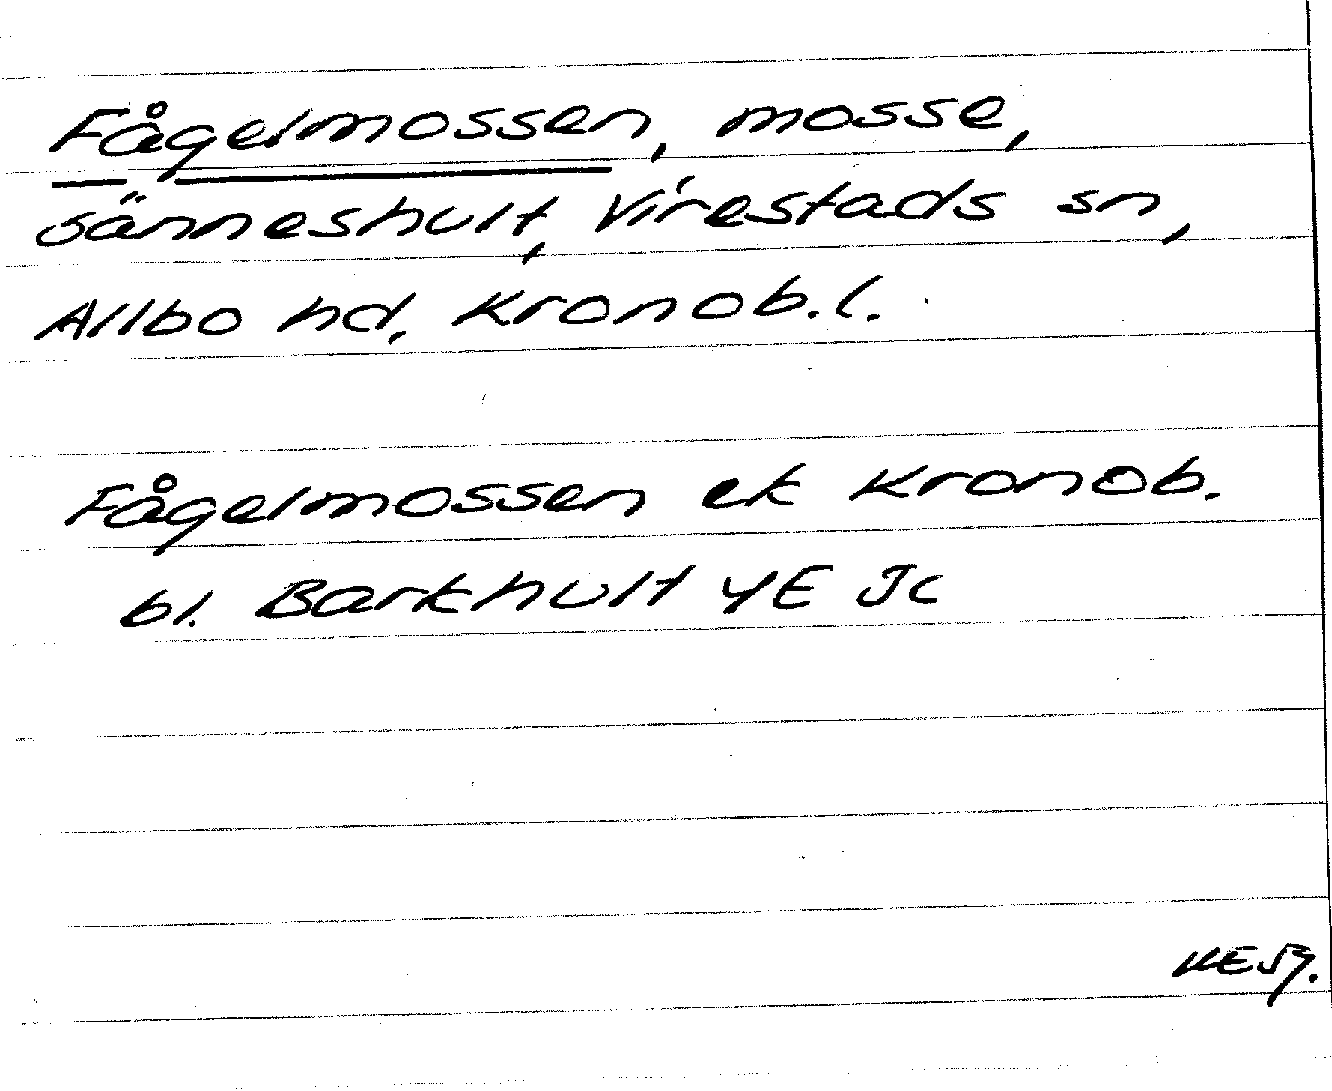 Fågelmossen, mosse,
Sänneshult, Virestads sn,
Allbo hd, Kronob. l.
Fågelmossen ek Kronob.
bl. Barkhult 4E Jc